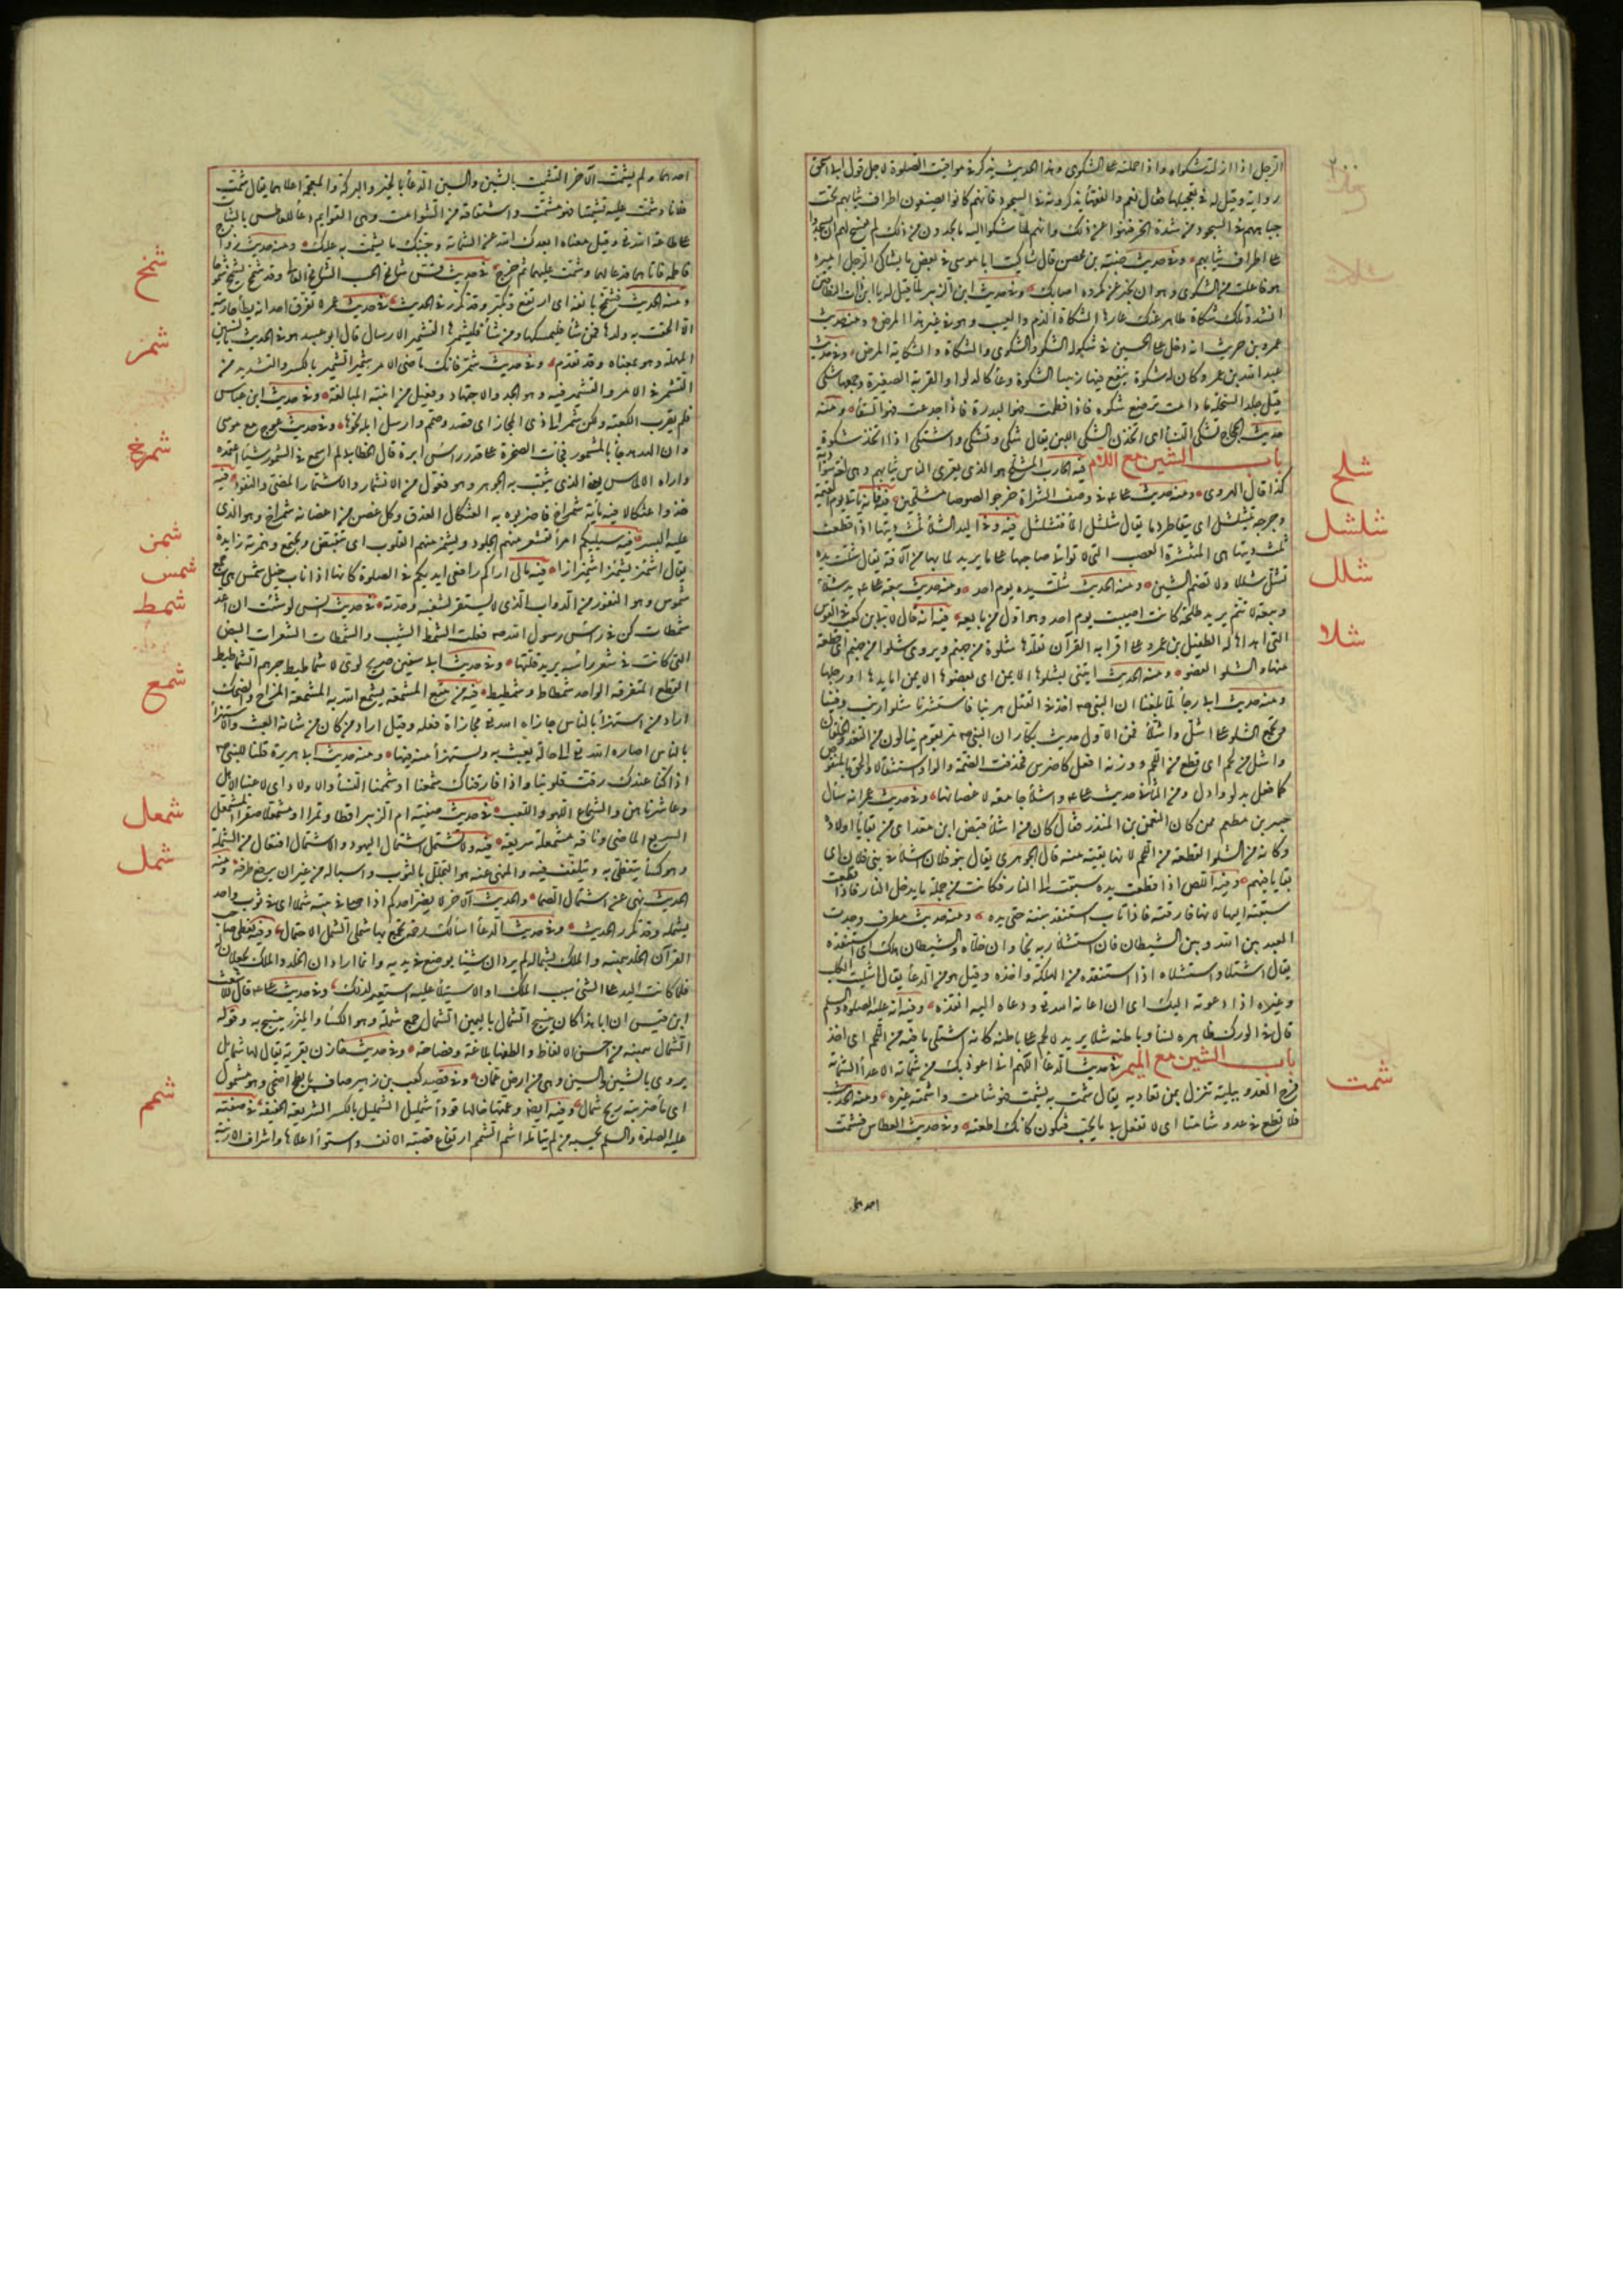 الرجل اذا ازلت شكواه واذا حملته على الشكوى وهذا الحديث يذكر في مواقيت الصلوة لاجل قول ابي اسحق
روايه وقيل له في تعجيلها فقال نعم والفقهاء يذكرونه في السجود فانهم كانوا يضعون اطراف ثيابهم تحت
جباههم في السجود من شدة الحر فنهوا عن ذلك وانهم لما شكوا اليه ما يجدون من ذلك لم يفسح لهم ان يسجدوا
على اطراف ثيابهم وفي حديث ضبة بن محصن قال شاكيت ابا موسى في بعض ما يشاكي الرجل اميره
هو فاعلت من الشكوى وهو ان تخبر عن مكروه اصابك وفي حديث ابن الزبير لما قيل له يا ابن ذات النطاقين
انشد وتلك شكاة ظاهر عنك عارها الشكاة الذم والعيب وهو في غير هذا المرض ومنه حديث
عمرو بن حريث انه دخل على الحسن في شكوله الشكو والشكوى والشكاة والشكاية المرض وفي حديث
عبد الله بن عمرو كان له شكوة ينقع فيها زبيبا الشكوة وعاء كالدلو او القربة الصغيرة وجمعها شكى
قيل جلد السخلة ما دامت ترضع شكوه فاذا فطمت فهو البدرة فاذا اجدعت فهو السقاء ومنه
حديث الحجاج تشكى النساء اى اتخذن الشكى للبن يقال شكى وتشكى واشتكى اذا اتخذ شكوة
باب الشين مع اللام فيه الحارب المشلح هو الذي يعرى الناس ثيابهم وهى لغة سوادية
كذا قال الهروى ومنه حديث على في وصف الشراة خرجوا لصوصا مشلحين فيه فانه ياتي يوم القيمة
وجرحه يتشلشل اى يتقاطر دما يقال شلشل الماء فتشلشل فيه وفي اليد الشلاء اذا قطعت
ثلث ديتها هى المنتشرة العصب التى لا تواتى صاحبها على ما يريد لما بها من الآفة يقال شلت يده
تشل شللا ولا تضم الشين ومنه الحديث شلت يده يوم احد ومنه حديث بيعة على يد شلاء
وبيعة لا تتم يريد طلحة كانت اصيبت يوم احد وهو اول من بايعه فيه انه قال لابي بن كعب في القوس
التى اهداها له الطفيل بن عمرو على اقرائه القرآن تقلدها شلوة من جهنم ويروى شلوا من جهنم اى قطعة
منها والشلو العضو ومنه الحديث ايتنى بشلوها الايمن اى بعضوها الايمن اما يدها او رجلها
ومنه حديث ابي رجاء لما بلغنا ان النبي اخذ في القتل هربنا فاستثرنا شلو ارنب دفينا
ويجمع الشلو على اشل واشلاء فمن الاول حديث بكار ان النبي مر بقوم ينالون من الثعد والحلقان
واشل من لحم اى قطع من اللحم ووزنه افعل كاضرس فحذفت الضمة والواو استثقالا والحق بالمنقوص
كما فعل بدلو وادل ومن الثاني حديث على واشلاء جامعة لاعضائها وفي حديث عمر انه سأل
جبير بن مطعم ممن كان النعمن بن المنذر فقال كان من اشلاء قنص ابن معد اى من بقايا اولاده
وكانه من الشلو القطعة من اللحم لانها بقيته منه قال الجوهرى يقال بنو فلان اشلاء في بنى فلان اى
بقايا فيهم وفيه اللص اذا قطعت يده سبقت الى النار فكانت من جملة ما يدخل النار فاذا قطعت
سبقته اليها لانها فارقته فاذا تاب استنقذ بنيته حتى يده ومنه حديث مطرف وجدت
العبد بين الله وبين الشيطان فان استشلاه ربه نجا وان خلاه والشيطان هلك اى استنقذه
يقال اشتلاه واستشلاه اذا استنقذه من الهلكة واخذه وقيل هو من الدعاء يقال اشليت الكلب
وغيره اذا دعوته اليك اى ان اغاثه الله ودعاه اليه انقذه وفيه انه عليه الصلوة والسلم
قال في الورك ظاهره نسا وباطنه شلا يريد لا لحم على باطنه كانه اشتلى ما فيه من اللحم اى اخذ
باب الشين مع الميم في حديث الدعاء اللهم انى اعوذ بك من شماتة الاعداء الشماتة
فرح العدو ببلية تنزل بمن تعاديه يقال شمت به يشمت فهو شامت واشمته غيره ومنه الحديث
فلا تطع في عدوا شامتا اى لا تفعل بى ما يحب فتكون كانك اطعته وفي حديث العطاس فشمت
احدهما
شلح
شلشل
شلل
شلا
شمت
احدهما ولم يشمت الآخر التشميت بالشين والسين الدعاء بالخير والبركة والمعجمة اعلاهما يقال شمت
فلانا وشمت عليه تشميتا فهو مشمت واشتقاقه من الشوامت وهى القوايم دعاء للعاطس بالثبات
على طاعة الله وقيل معناه ابعدك الله عن الشماتة وجنبك ما يشمت به عليك ومنه حديث زواج
فاطمة فاتاهما فدعا لهما وشمت عليهما ثم خرج في حديث قس شامخ الحسب الشامخ العالى وقد شمخ يشمخ شموخا
ومنه الحديث فشمخ بانفه اى ارتفع وتكبر وقد تكرر في الحديث في حديث عمر لا يقرن احد انه يطأ جاريته
الا الحقت به ولدها فمن شاء فليمسكها ومن شاء فليشمرها التشمير الارسال قال ابو عبيد هو في الحديث بالسين
المهملة وهو بمعناه وقد تقدم وفي حديث شمر فانك ماضى الامر شمير الشمير بالكسر والتشديد من
التشمر في الامر والتشمير فيه وهو الجد والاجتهاد وفعيل من ابنية المبالغة وفي حديث ابن عباس
فلم يقرب الكعبة ولكن شمر الى ذى المجاز اى قصد وصمم وارسل ابله نحوها وفي حديث عوج مع موسى
وان الهدهد جاء بالشمور فجابت الصخرة على قدر راس ابرة قال الخطابى لم اسمع في الشمور شيئا اعتمده
واراه الالماس يعنى الذي يثقب به الجوهر وهو فعول من الانشمار والاشتمار المضى والنفوذ فيه
خذوا عثكالا فيه ماية شمراخ فاضربوه به العثكال العذق وكل غصن من اغصانه شمراخ وهو الذى
عليه البسر فيه سيليكم امراء تقشعر منهم الجلود وتشمئز منهم القلوب اى تنقبض وتجتمع وهمزته زايدة
يقال اشمأز يشمئز اشمئزازا فيه مالى اراكم رافعى ايديكم في الصلوة كانها اذناب خيل شمس هى جمع
شموس وهو النفور من الدواب الذى لا يستقر لشغبه وحدته في حديث انس لو شئت ان اعد
شمطات كن في راس رسول الله فعلت الشمط الشيب والشمطات الشعرات البيض
التى كانت في شعر راسه يريد قلتها وفي حديث ابي سفين صريح لوى لا شماطيط جرهم الشماطيط
القطع المتفرقة الواحد شمطاط وشمطيط فيه من يتتبع المشمعة يشمع الله به المشمعة المزاح والضحك
اراد من استهزأ بالناس جازاه الله مجازاة فعله وقيل اراد من كان من شانه العبث والاستهزاء
بالناس اصاره الله الى حالة يعبث به ويستهزأ منه فيها ومنه حديث ابي هريرة قلنا للنبي
اذا كنا عندك رقت قلوبنا واذا فارقناك شمعنا او شممنا النساء والاولاد اى لاعبنا الاهل
وعاشرناهن والشماع اللهو واللعب في حديث صفية ام الزبير اقطا وتمرا او مشمعلا صقرا المشمعل
السريع الماضى وناقة مشمعلة سريعة فيه ولا تشتمل اشتمال اليهود والاشتمال افتعال من الشملة
وهو كساء يتغطى به ويتلفف فيه والمنهى عنه هو التجلل بالثوب واسباله من غير ان يرفع طرفه ومنه
الحديث نهى عن اشتمال الصماء والحديث الآخر لا يضر احدكم اذا صلى في بيته شملا اى في ثوب واحد
يشمله وقد تكرر الحديث وفي حديث الدعاء اسالك رحمة تجمع بها شملى الشمل الاجتماع وفيه يعطى صاحب
القرآن الخلد بيمينه والملك بشماله لم يرد ان شيئا يوضع في يديه وانما اراد ان الخلد والملك يجعلان له
فلما كانت اليد على الشئ سبب الملك او الاستيلاء عليه استعير لذلك وفي حديث على قال للاشعث
ابن قيس ان ابا هذا كان ينسج الشمال باليمين الشمال جمع شملة وهو الكساء والمئزر يتشح به وقوله
الشمال بيمينه من احسن الالفاظ والطفها بلاغة وفصاحة وفي حديث مازن بقرية يقال لها شمايل
يروى بالشين والسين وهى من ارض عمان وفي قصيد كعب بن زهير صاف بابطح اضحى وهو مشمول
اى ماء ضربته ريح شمال وفيه ايضا وعمها خالها قوداء شمليل الشمليل بالكسر السريعة الخفيفة في صفته
عليه الصلوة والسلم يحسبه من لم يتامله اشم الشمم ارتفاع قصبة الانف واستواء اعلاها واشراف الارنبة
شمخ
شمر
شمرخ
شمز
شمس
شمط
شمع
شمعل
شمل
شمم